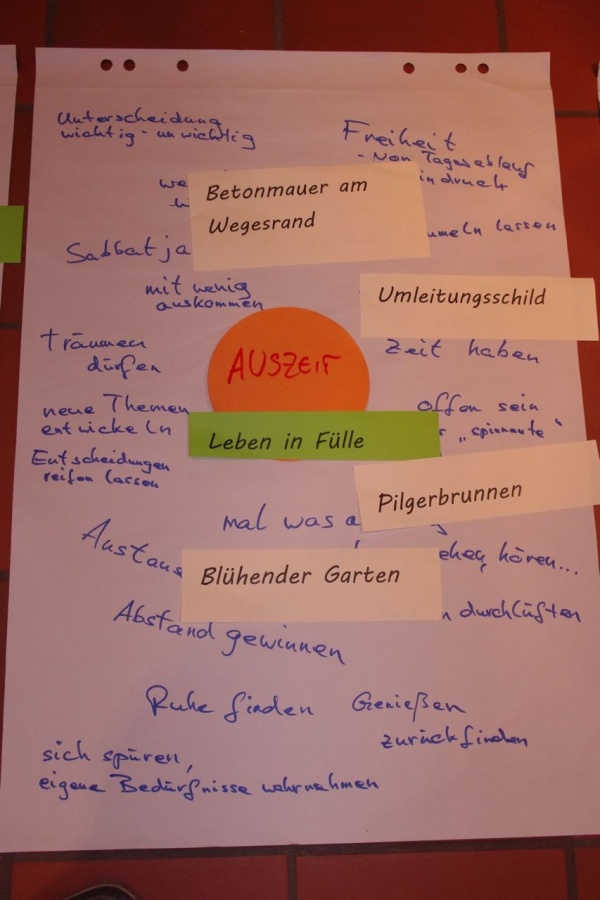 Unterscheidung
wichtig - unwichtig
Freiheit
- Non Tagesablauf
Betonmauer am
Wegesrand
lassen
Sabbatja
mit wenig
auskommen
Umleitungsschild
Träumen
dürfen
AUSZEIT
Zeit haben
neue Themen
entwickeln
offen sein
„spinnerte“
Leben in Fülle
Entscheidungen
reifen lassen
Pilgerbrunnen
mal was
Austaus
hören...
Blühender Garten
durchlüften
Abstand gewinnen
Ruhe finden
Genießen
zurückfinden
sich spüren,
eigene Bedürfnisse wahrnehmen